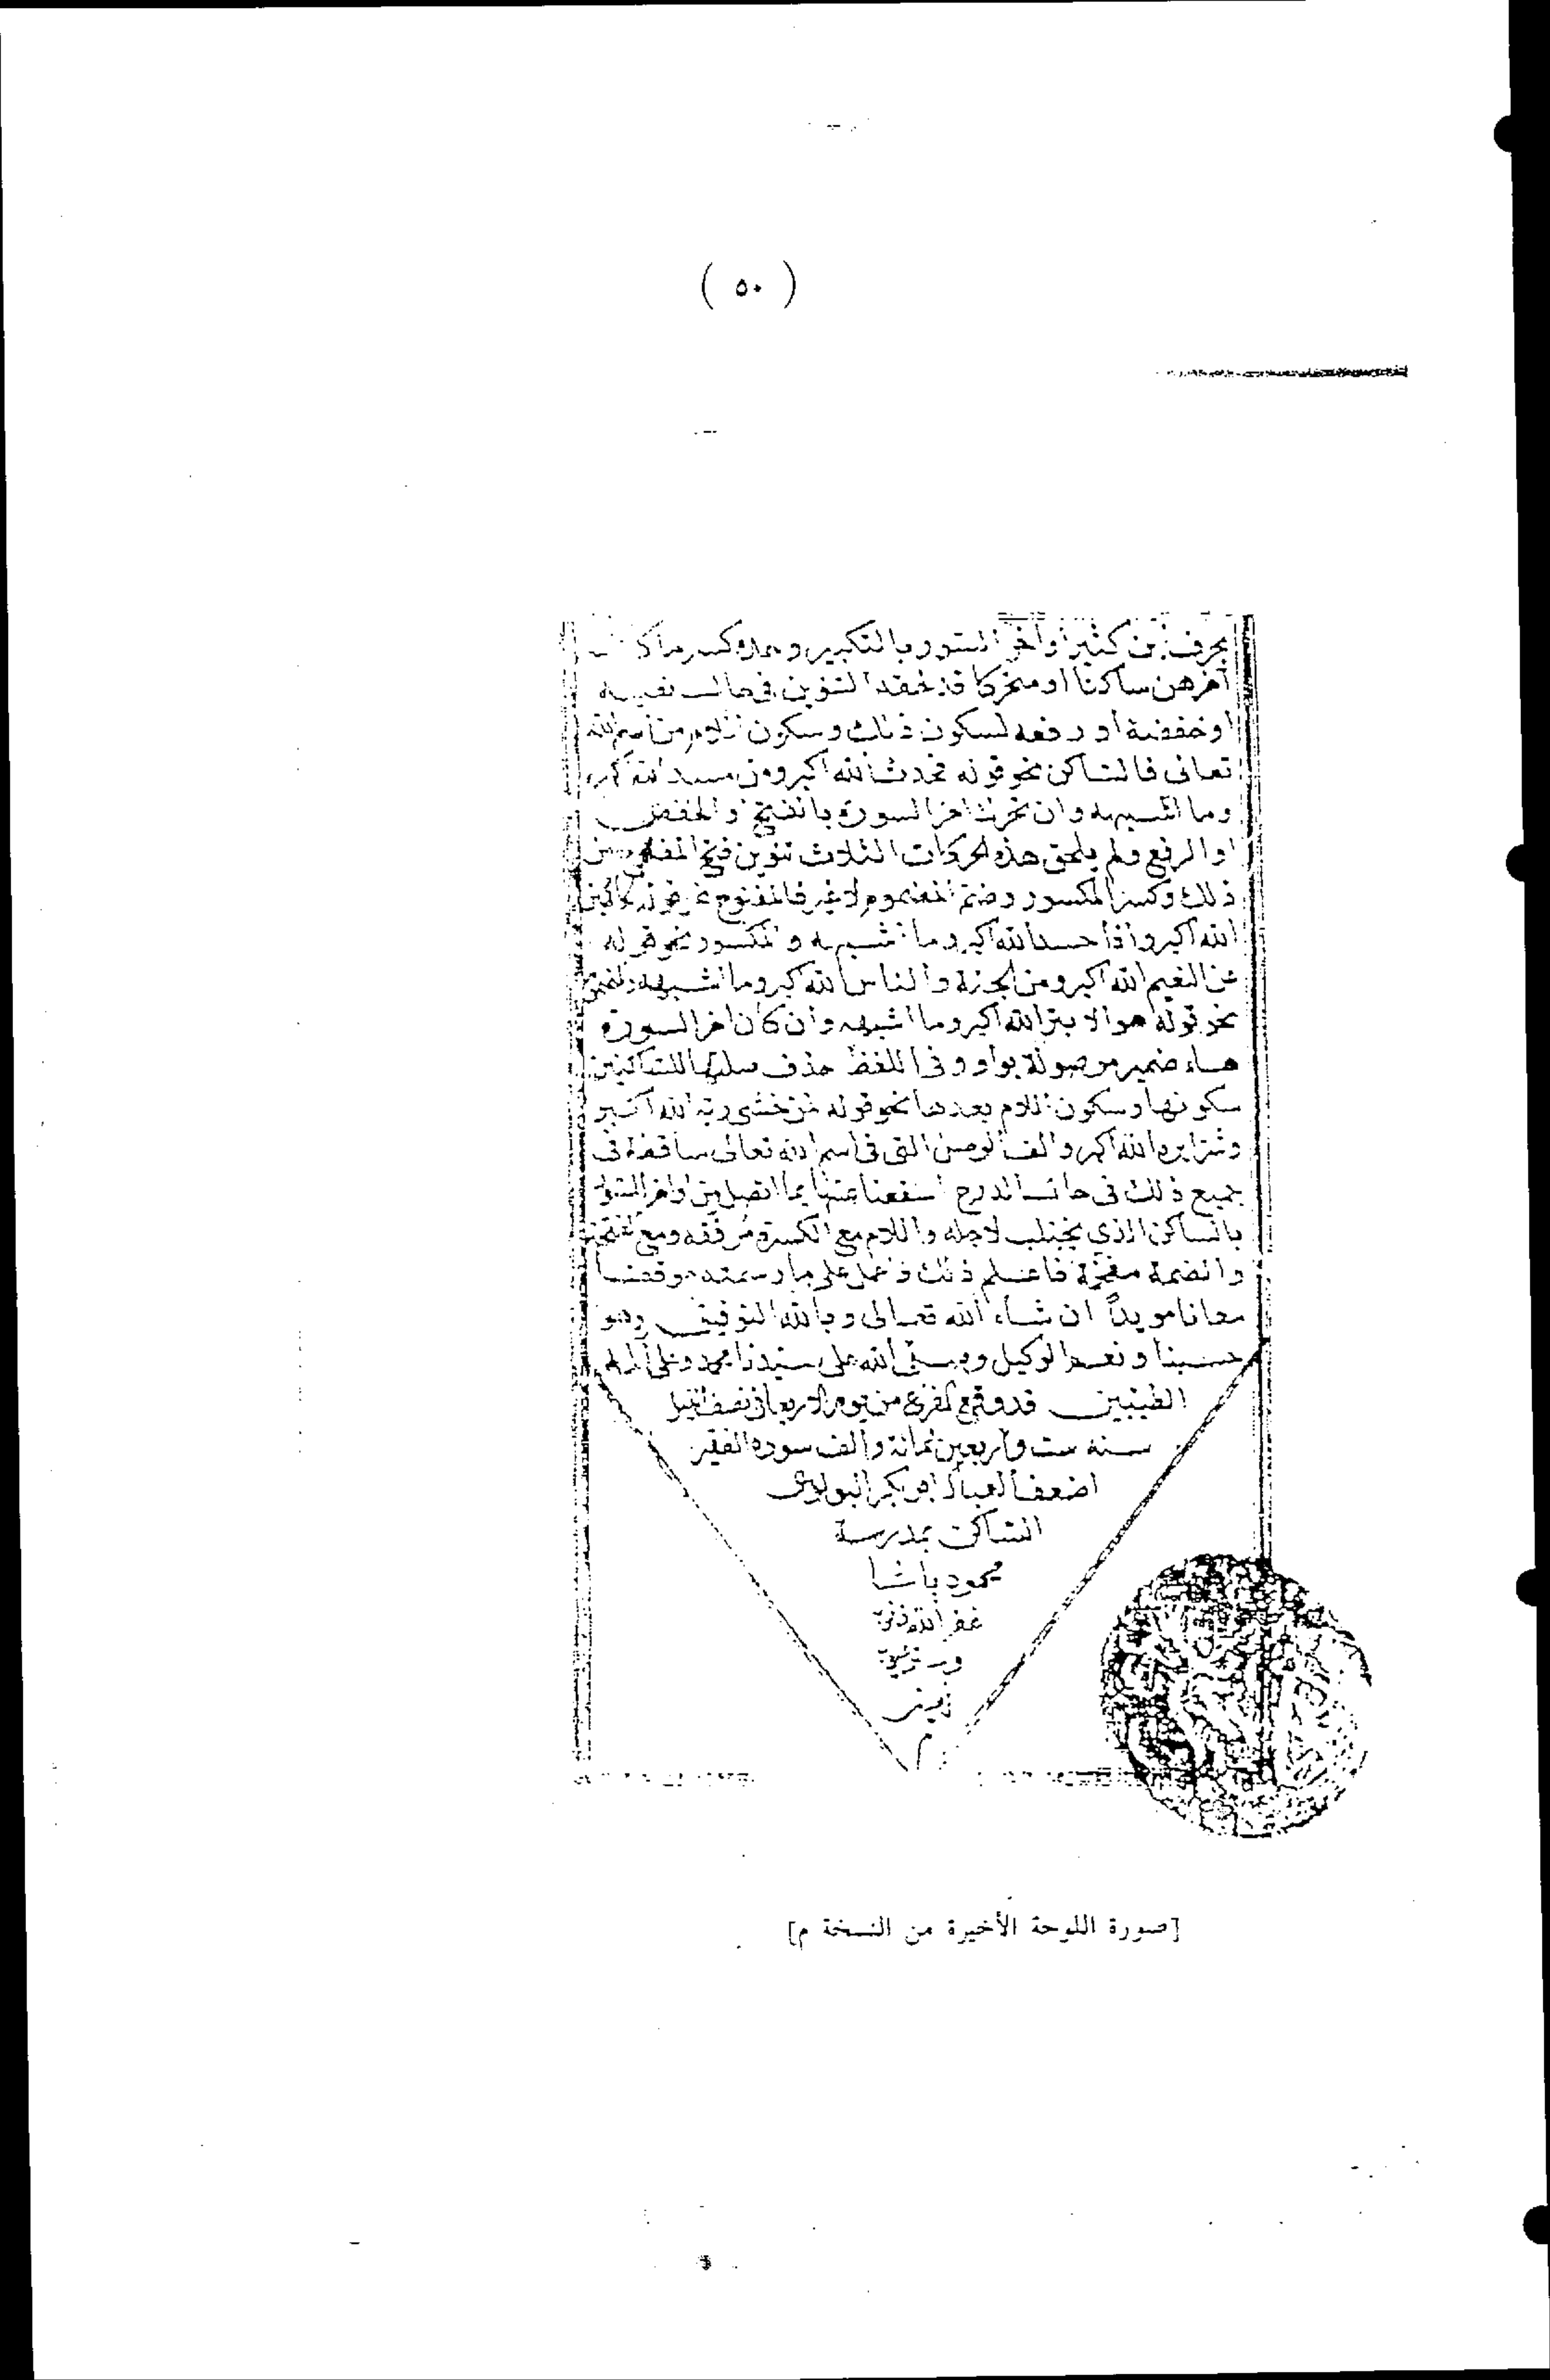 ( ٥٠ )
بحرف ابن كثير اواخر السور بالتكبير وحده كسر ما كان
اخرهن ساكنا او متحركا قد لحقه التنوين في حال نصبه
او خفضه او رفعه لسكون ذلك وسكون اللام من اسم الله
تعالى فالساكن نحو قوله فحدث الله اكبر ومن مسد الله اكبر
وما اشبهه وان تحرك اخر السورة بالفتح او الخفض
او الرفع ولم يلحق هذه الحركات الثلاث تنوين فتح المفتوح من
ذلك وكسر المكسور وضم المضموم لا غير فالمفتوح نحو قوله الحاكمين
الله اكبر واذا حسد الله اكبر وما اشبهه والمكسور نحو قوله
عن النعيم الله اكبر ومن الجنة والناس الله اكبر وما اشبهه والمضموم
نحو قوله هو الابتر الله اكبر وما اشبهه وان كان اخر السورة
هاء ضمير موصولة بواو في اللفظ حذف صلتها للساكنين
سكونها وسكون اللام بعدها نحو قوله لمن خشي ربه الله اكبر
وشرا يره الله اكبر والف الوصل التي في اسم الله تعالى ساقطة في
جميع ذلك في حال الدرج استغناء عنها بما اتصل من اواخر السور
بالساكن الذي يجتلب لاجله واللام مع الكسرة مرققة ومع الفتحة
والضمة مفخمة فاعلم ذلك واعمل على ما رسمته موفقا
معانا مويدا ان شاء الله تعالى وبالله التوفيق وهو
حسبنا ونعم الوكيل وصلى الله على سيدنا محمد وعلى اله
الطيبين قد وقع الفرغ من يوم الاربعا في نصف الليل
سنه ست واربعين ثمانة والف سوده الفقير
اضعف العباد ابو بكر البولوي
الساكن بمدرسة
محمود باشا
غفر الله ذنوبه
وستر عيوبه
امين
م
[صورة اللوحة الأخيرة من النسخة م]